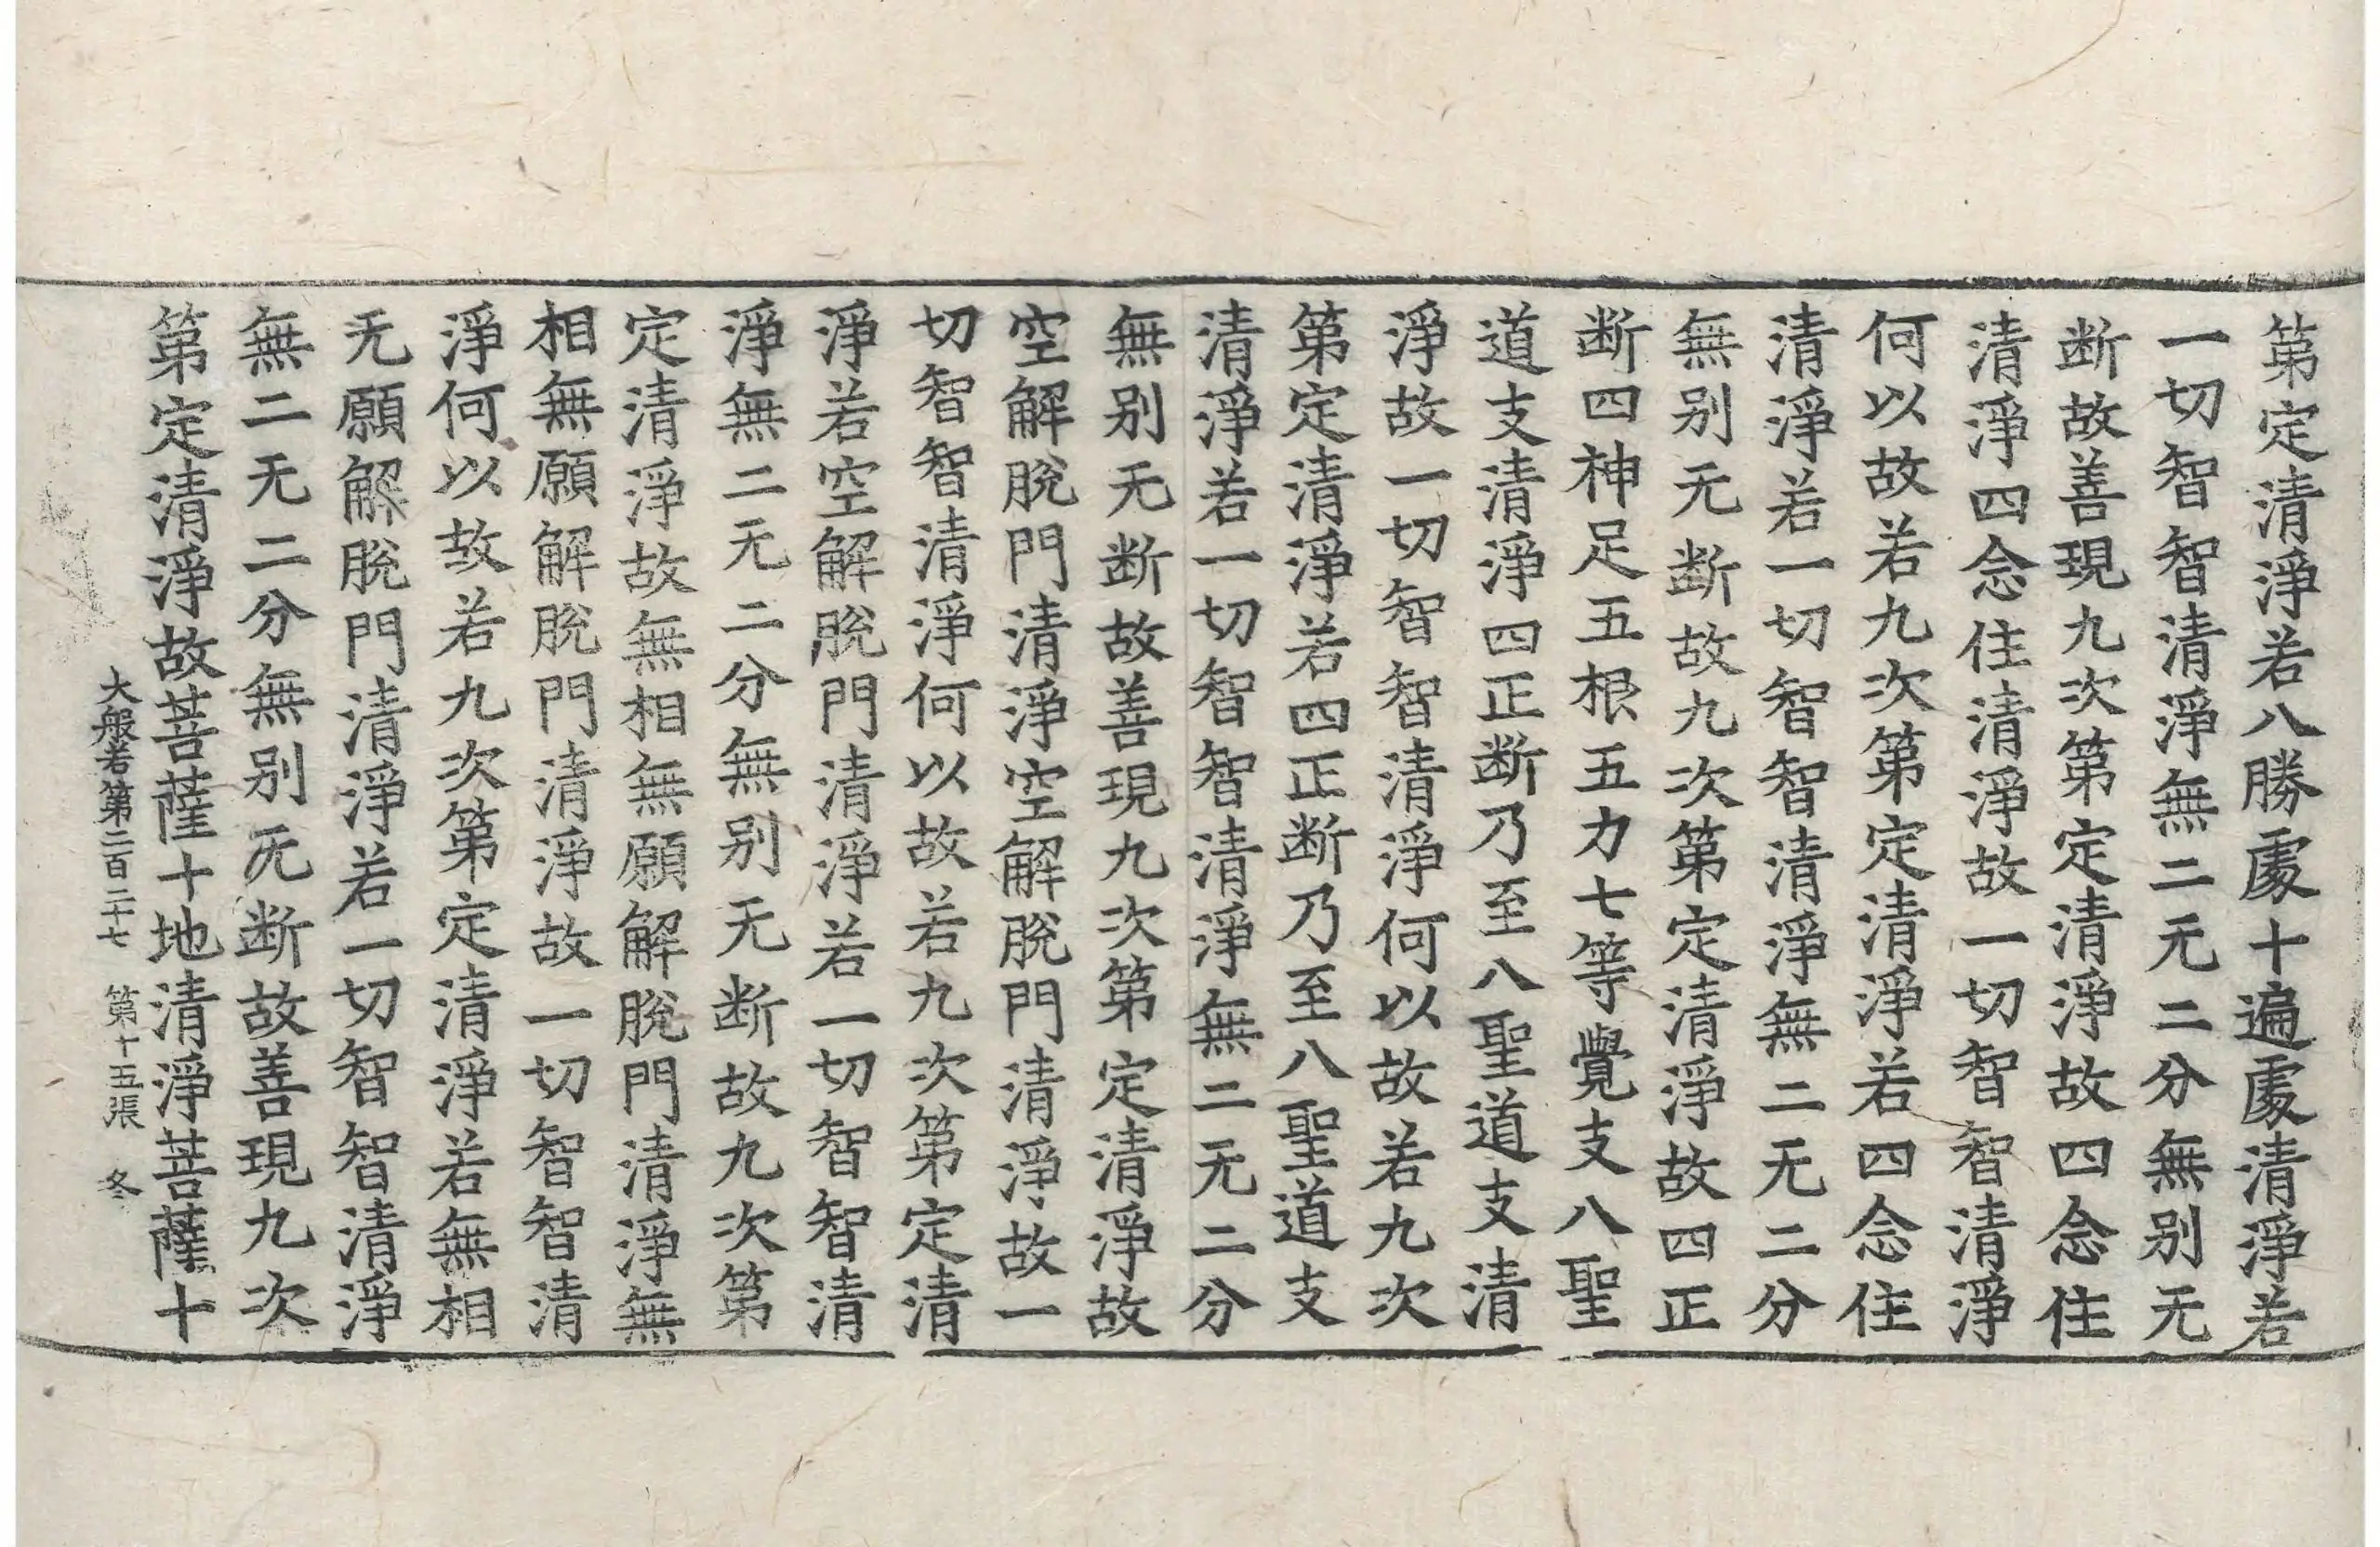 第定清淨若八勝處十遍處清淨若
一切智智清淨無二无二分無别无
断故善現九次第定清淨故四念住
清淨四念住清淨故一切智智清淨
何以故若九次第定清淨若四念住
清淨若一切智智清淨無二无二分
無别无断故九次第定清淨故四正
断四神足五根五力七等覺支八聖
道支清淨四正断乃至八聖道支清
淨故一切智智清淨何以故若九次
第定清淨若四正断乃至八聖道支
清淨若一切智智清淨無二无二分
無别无断故善現九次第定清淨故
空解脫門清淨空解脫門清淨故一
切智智清淨何以故若九次第定清
淨若空解脫門清淨若一切智智清
淨無二无二分無别无断故九次第
定清淨故無相無願解脫門清淨無
相無願解脫門清淨故一切智智清
淨何以故若九次第定清淨若無相
无願解脫門清淨若一切智智清淨
無二无二分無别无断故善現九次
第定清淨故菩薩十地清淨菩薩十
大般若第二百二十七 第十五張 冬